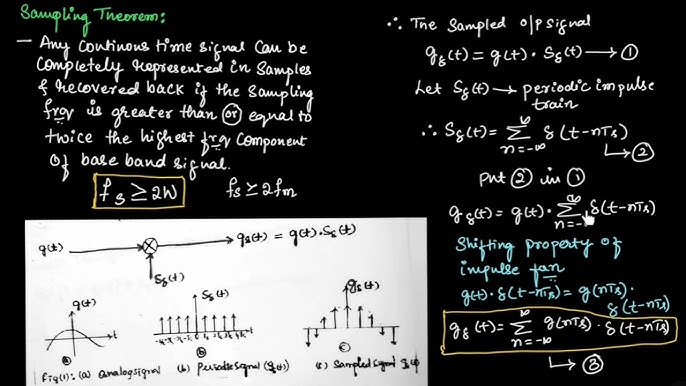 Sampling Theorem:
- Any Continous time signal can be
Completely represented in Samples
& recovered back if the Sampling
frq is greater than (or) equal to
twice the highest frq Component
Of base band signal.
fs ≥ 2W fs ≥ 2fm
g(t) gδ(t) = g(t).Sδ(t)
Sδ(t)
g(t) Sδ(t) gδ(t)
t
(a) (b) (c)
Fig(1): (a) Analog signal (b) Periodic signal (c) Sampled Signal
∴ The Sampled o/p signal
gδ(t) = g(t) · Sδ(t) → ①
Let Sδ(t) → periodic impulse
train
∴ Sδ(t) = ∑ n=-∞ ∞ δ(t-nTs)
→ ②
put ② in ①
gδ(t) = g(t) · ∑ n=-∞ ∞ δ(t-nTs)
Shifting property of
impulse fxn
g(t) · δ(t-nTs) = g(nTs) ·
δ(t-nTs)
gδ(t) = ∑ n=-∞ ∞ g(nTs) · δ(t-nTs)
→ ③